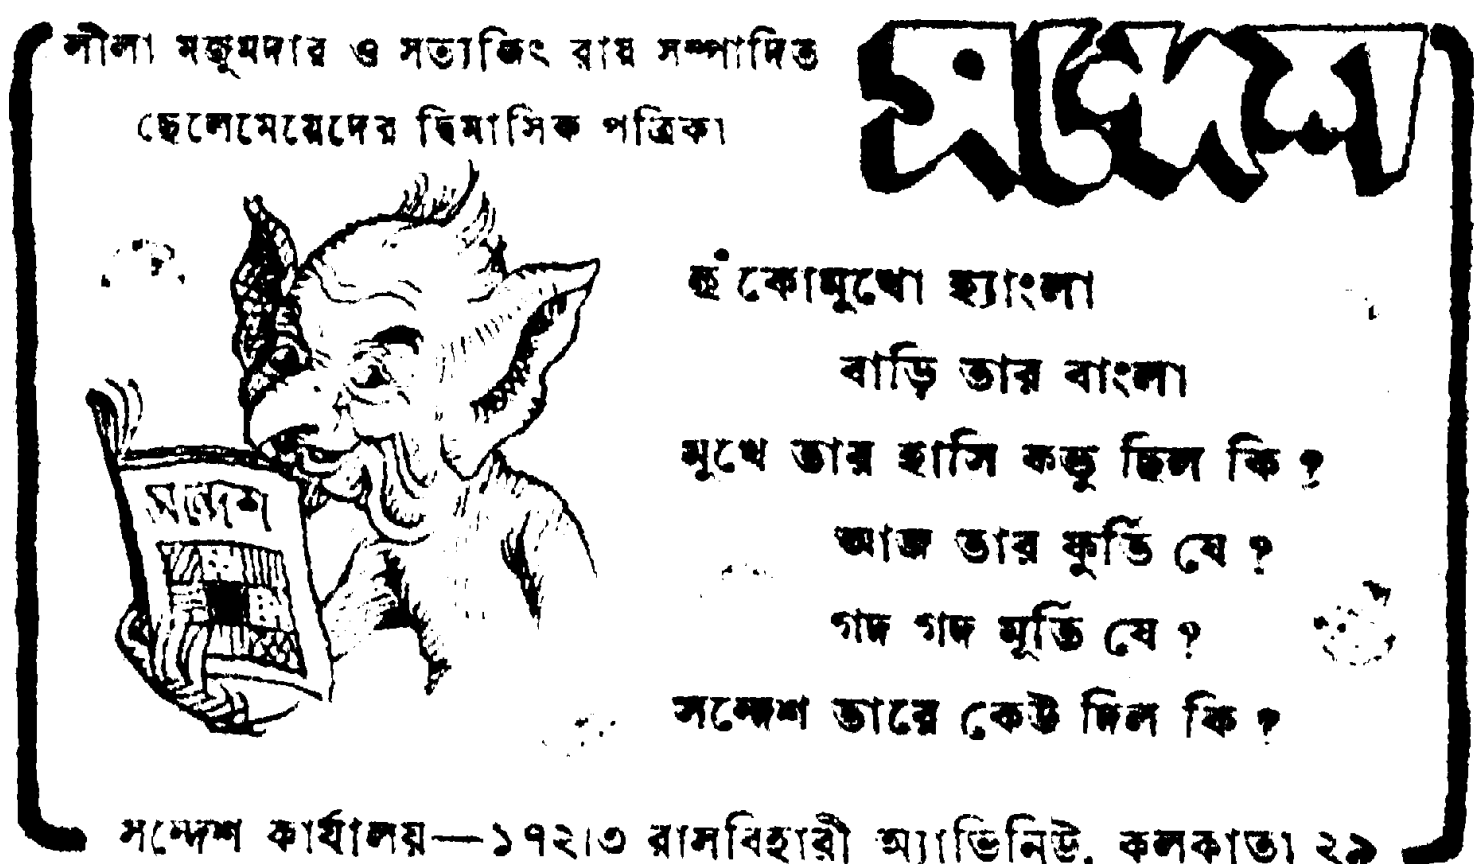 লীলা মজুমদার ও সত্যজিৎ রায় সম্পাদিত
ছেলেমেয়েদের দ্বিমাসিক পত্রিকা
সন্দেশ
হুঁকোমুখো হ্যাংলা
বাড়ি তার বাংলা
মুখে তার হাসি কভু ছিল কি ?
আজ তার ফুর্তি যে ?
গদ গদ মূর্তি যে ?
সন্দেশ তারে কেউ দিল কি ?
সন্দেশ
সন্দেশ কার্যালয়—১৭২।৩ রাসবিহারী অ্যাভিনিউ, কলকাতা ২৯